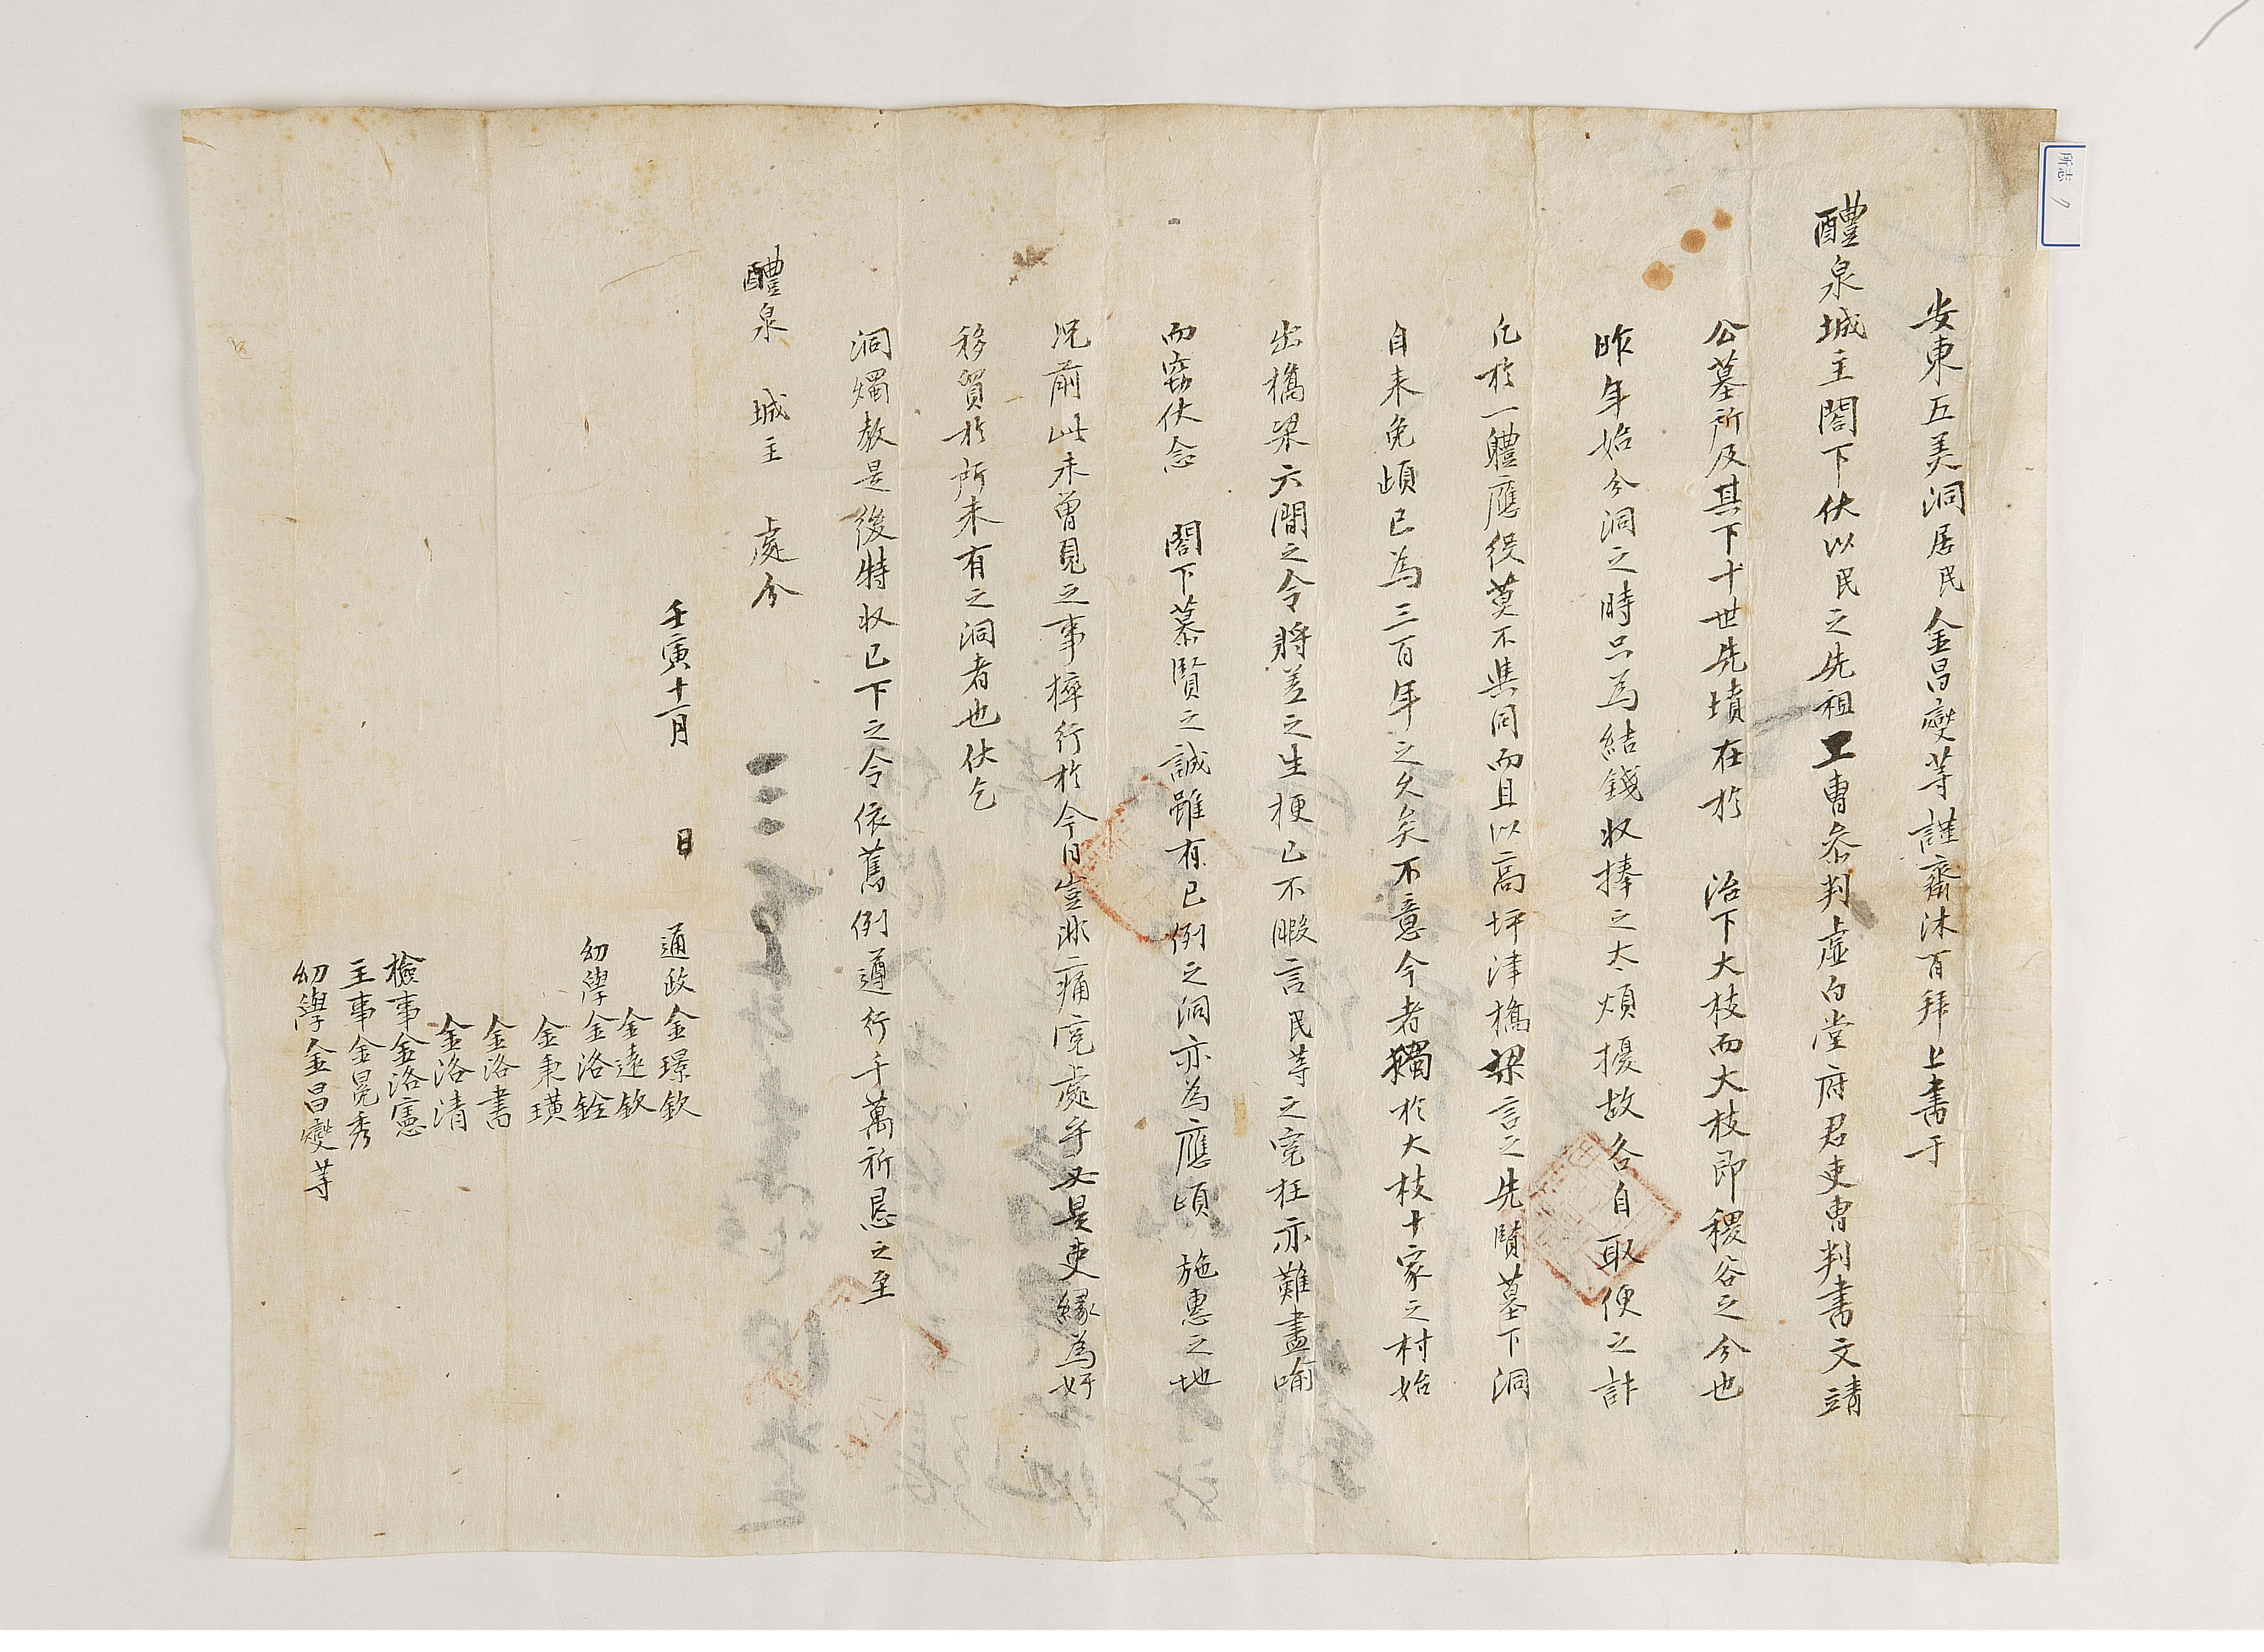 安東五美洞居民金昌燮等謹齋沐百拜上書于
醴泉城主閤下伏以民之先祖工曹叅判虛白堂府君吏曹判書文靖
公墓所及其下十世先墳在於 治下大枝而大枝即稷谷之分也
昨年始分洞之時只爲結錢収捧之太煩擾故各自取便之計
凡於一軆應役莫不與同而且以高坪津橋梁言之先賢墓下洞
自來免頉已爲三百年之久矣不意今者獨於大枝十家之村始
出橋梁六間之令將差之生梗已不暇言民等之寃枉亦難盡喻
而窃伏念 閤下慕賢之誠雖有已例之洞亦爲應頉 施惠之地
况前此未曾見之事猝行於今日豈非痛寃處乎必是吏緣爲奸
移貿於所未有之洞者也伏乞
洞燭敎是後特収已下之令依舊例遵行千萬祈恳之至
醴泉 城主 處分
壬寅十二月 日
通政金璟欽
金遠欽
幼學金洛銓
金秉璜
金洛書
金洛清
檢事金洛憲
主事金晃秀
幼學金昌燮等
所志 7